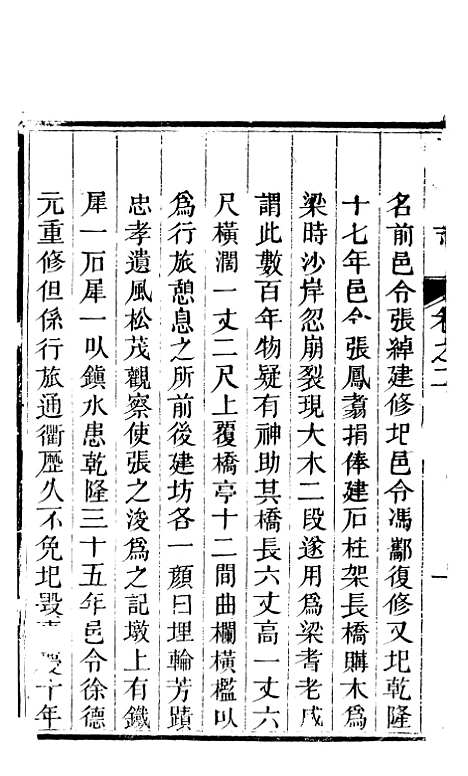 名前邑令張綽建修圯邑令馮酅復修又圯乾隆
十七年邑令張鳳翥捐俸建石柱架長橋購木爲
梁時沙岸忽崩裂現大木二段遂用爲梁耆老咸
謂此數百年物疑有神助其橋長六丈高一丈六
尺橫濶一丈二尺上覆橋亭十二間曲欄橫檻以
爲行旅憩息之所前後建坊各一顏曰埋輪芳蹟
忠孝遺風松茂觀察使張之浚爲之記墩上有鐵
犀一石犀一以鎮水患乾隆三十五年邑令徐德
元重修但係行旅通衢歷久不免圯毀慶十年
卷之二